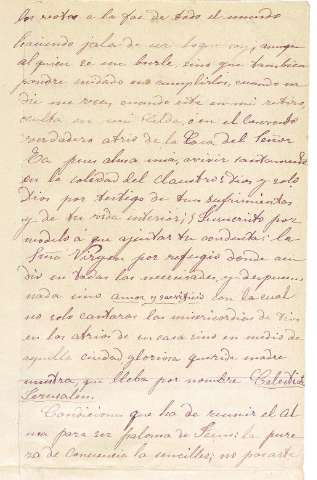 los restos a la faz de todo el mundo
haciendo gala de ser lo que soy, aunque
alguien se me burle, sino que tambien
pondre cuidado en cumplirlos, cuando na
die me vea, cuando este en mi retiro,
oculta en mi Celda, ó en el Convento
verdadero atrio de la Casa del Señor
Ea pues alma mia, a vivir santamente
en la soledad del claustro! Dios y solo
Dios por testigo de tus sufrimientos
y de tu vida interior; Jesucristo por
modelo á que ajustar tu conducta: la
Sma Virgen por refugio donde acu
dir en todas las necesidades, y despues...
nada sino amor y sacrificio con la cual
no solo cantarás las misericordias de Dios
en los atrios de su casa sino en medio de
aquella ciudad gloriosa querida madre
nuestra, que lleba por nombre Celestial
Jerusalem.
Condiciones que ha de reunir el al
ma para ser paloma de Jesus: la pure
za de conciencia la sencillez; no pararse